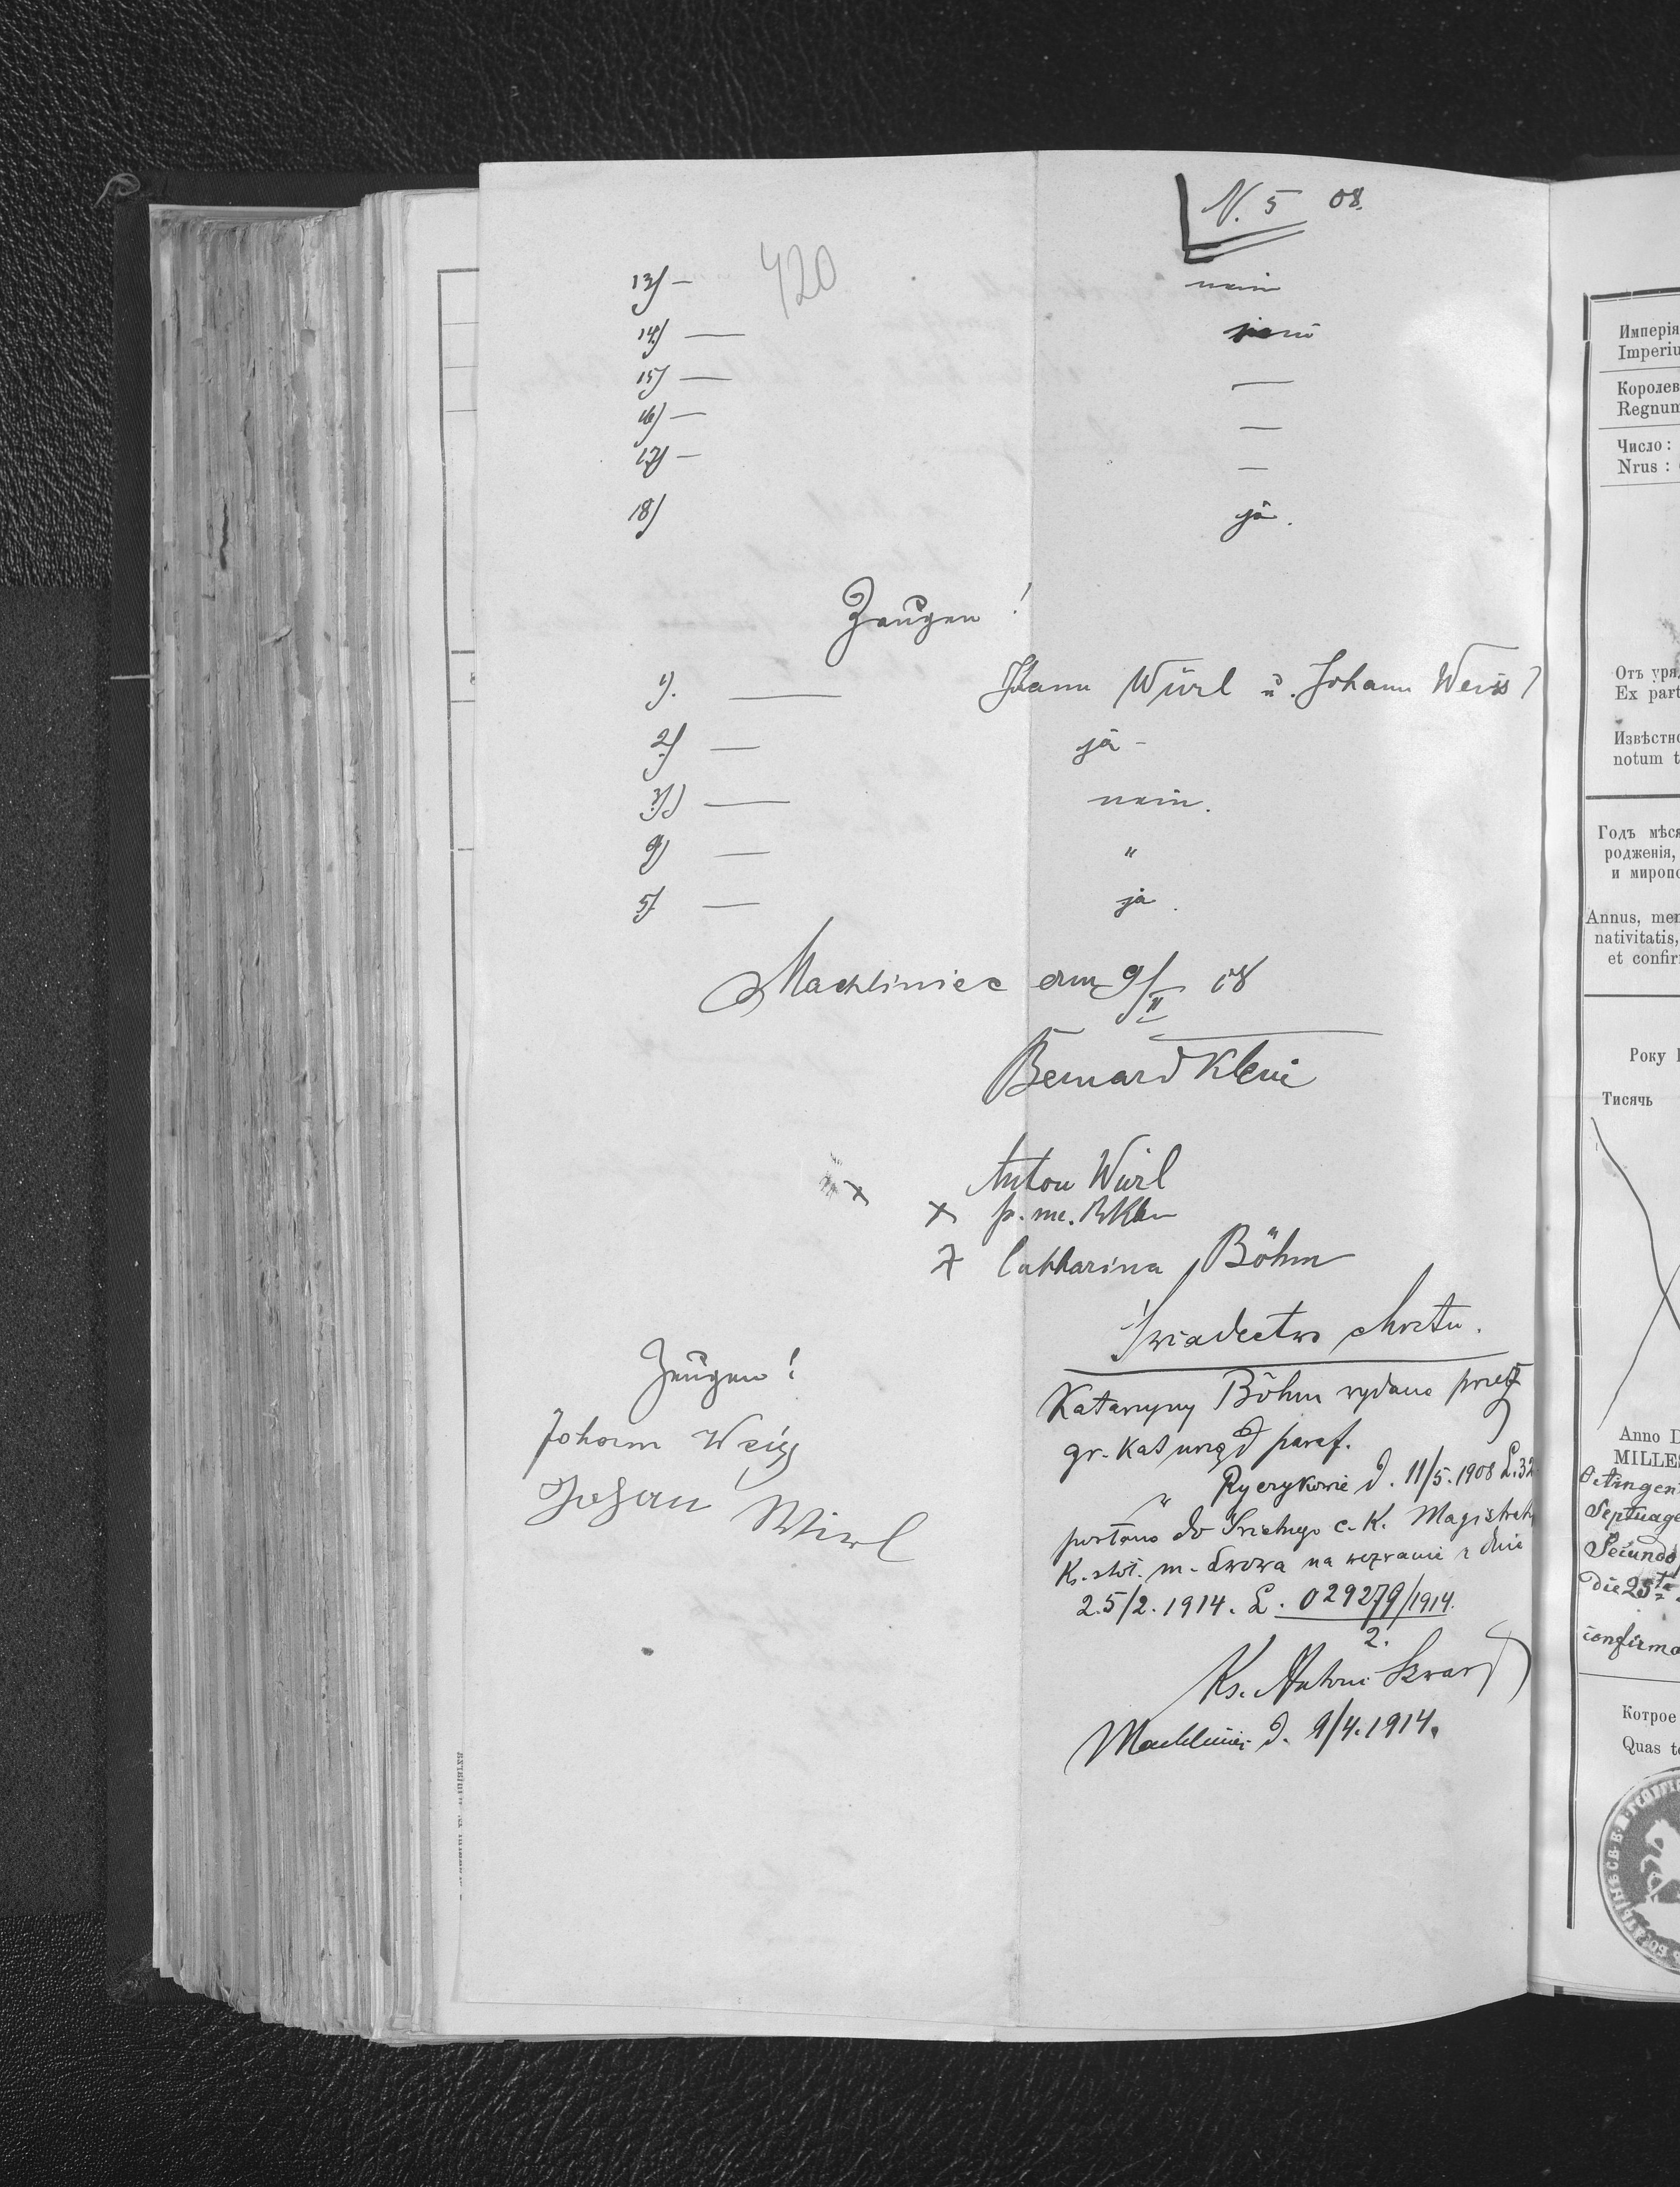 N. 5 08.
420
13) — nein
14) — nein
15) — —
16) — —
17) — —
18) ja.
Zeugen!
1). — Johann Würl u. Johann Weiss
2) — ja -
3) — nein.
4) — "
5) — ja.
Machliniec am 9/II 08
Bernard Klein
Anton Würl
x x p. m.
x Catharina Böhm
Świadectwo chrztu.
Katarzyny Böhm wydane przez
gr. kat urząd paraf.
w Ryczykowie d. 11/5. 1908 L. 32
posłano do Świetnego c. K. Magistratu
K. stoł. m. Lwowa na wezwanie z dnia
25/2. 1914. L. 029279/1914.
2.
Ks. Antoni
Machliniec d. 9/4. 1914.
Zeugen!
Johann Weiss
Johann Wirl
Имперія
Imperiu
Королев
Regnum
Число:
Nrus:
Отъ уря
Ex part
Извѣстно
notum t
Годъ мѣся
родженія,
и миропо
Annus, men
nativitatis,
et confir
Року
Тисячь
Anno D
MILLES
Octingen
Septuage
Secundo
Die 25ta
confirma
Котрое
Quas te